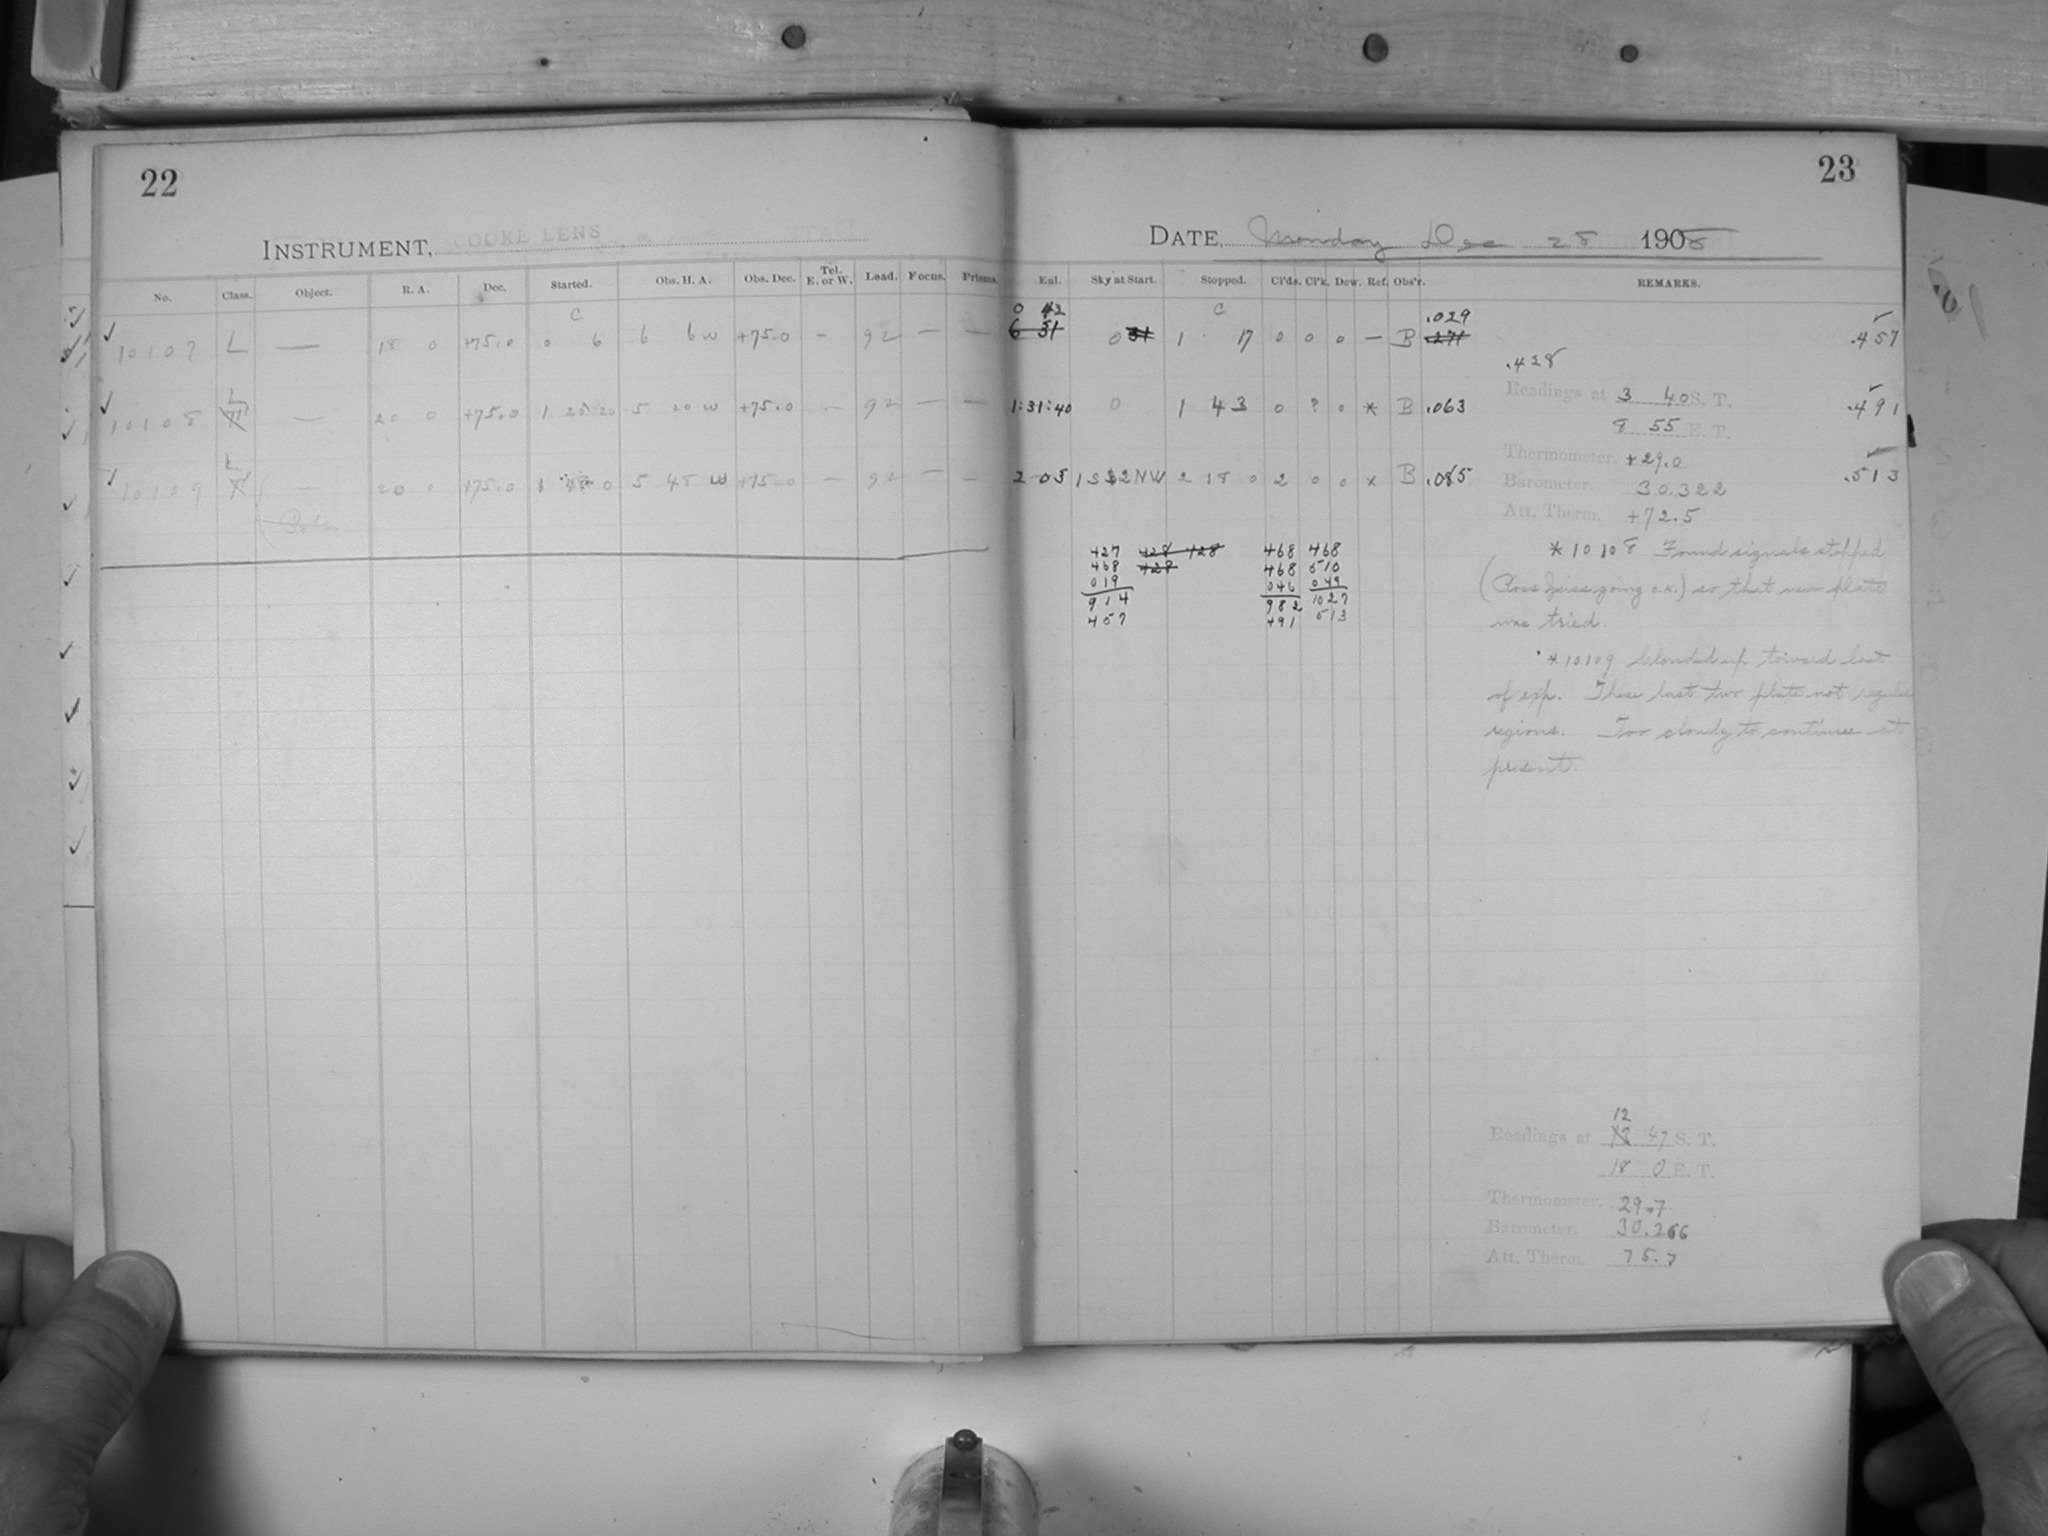 22
INSTRUMENT, COOKE LENS
No. Class. Object. R. A. Dec. Started. Obs. H. A. Obs. Dec. Tel. E. or W. Load. Focus. Prisms.
C
10107 L — 18 0 +75.0 0 6 6 6 W +75.0 — 92 — —
L
10108 — 20 0 +75.0 1 20 5 20 W +75.0 — 92 — —
L
10109 — 20 0 +75.0 1 5 48 W +75.0 — 92 — —
23
DATE, Monday Dec 28 1908
Exl. Sky at Start. Stopped. Cl'ds. Cl'k. Dew. Ref. Obs'r. REMARKS.
0 42 C .029
6 51 0 51 1 17 0 0 0 — B .271 .457
.428
Readings at 3 40 S. T.
1:31:40 0 1 43 0 ? 0 * B .063 .491
8 55 E. T.
Thermometer. +29.0
2 05 2 NW 2 18 0 2 0 0 x B .085 .513
Barometer. 30.322
Att. Therm. +72.5
427 428 428 468 468
468 428 468 510
019 046 049
914 982 1027
457 491 513
*10108 Found signals stopped
going o.k.) so that new plate
was tried.
*10109 Clouded up toward last
of exp. These last two plates not regular
regions. Too cloudy to continue at
present.
12
Readings at 18 47 S. T.
18 0 E. T.
Thermometer. 29.7
Barometer. 30.266
Att. Therm. 75.7